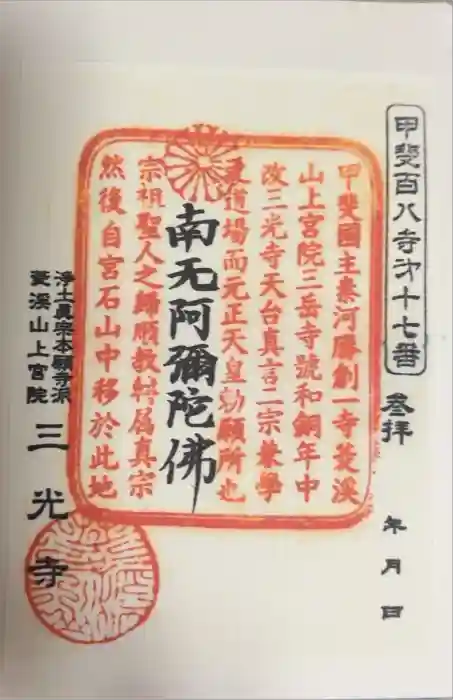 甲斐百八寺才十七番
叅拝
年月日
甲斐國主秦河勝創一寺菱溪
山上宮院三岳寺號和銅年中
改三光寺天台真言二宗兼學
道場而元正天皇勅願所也
南无阿彌陀佛
宗祖聖人之歸順教轉属真宗
然後自宮石山中移於此地
淨土真宗本願寺派
菱溪山上宮院
三光寺